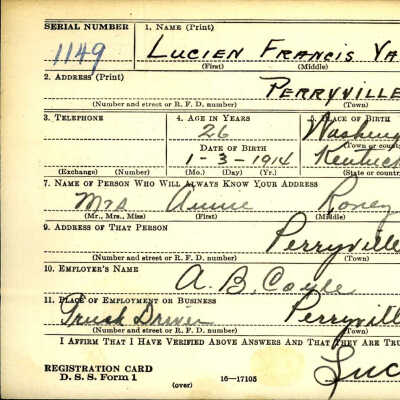 SERIAL NUMBER 1. NAME (Print)
1149 LUCIEN FRANCIS YA
(First) (Middle)
2. ADDRESS (Print)
PERRYVILLE
(Number and street or R. F. D. number) (Town)
3. TELEPHONE 4. AGE IN YEARS 5. PLACE OF BIRTH
26 Washing
DATE OF BIRTH (Town or coun
1-3-1914 Kentuck
(Exchange) (Number) (Mo.) (Day) (Yr.) (State or country
7. NAME OF PERSON WHO WILL ALWAYS KNOW YOUR ADDRESS
Mrs Annie Roney
(Mr., Mrs., Miss) (First) (Middle)
9. ADDRESS OF THAT PERSON
Perryville
(Number and street or R. F. D. number) (Town)
10. EMPLOYER'S NAME
A. B. Coyle
11. PLACE OF EMPLOYMENT OR BUSINESS
Truck Driver Perryvill
(Number and street or R. F. D. number) (Town)
I AFFIRM THAT I HAVE VERIFIED ABOVE ANSWERS AND THAT THEY ARE TRU
REGISTRATION CARD Luc
D. S. S. Form 1 16—17105
(over)